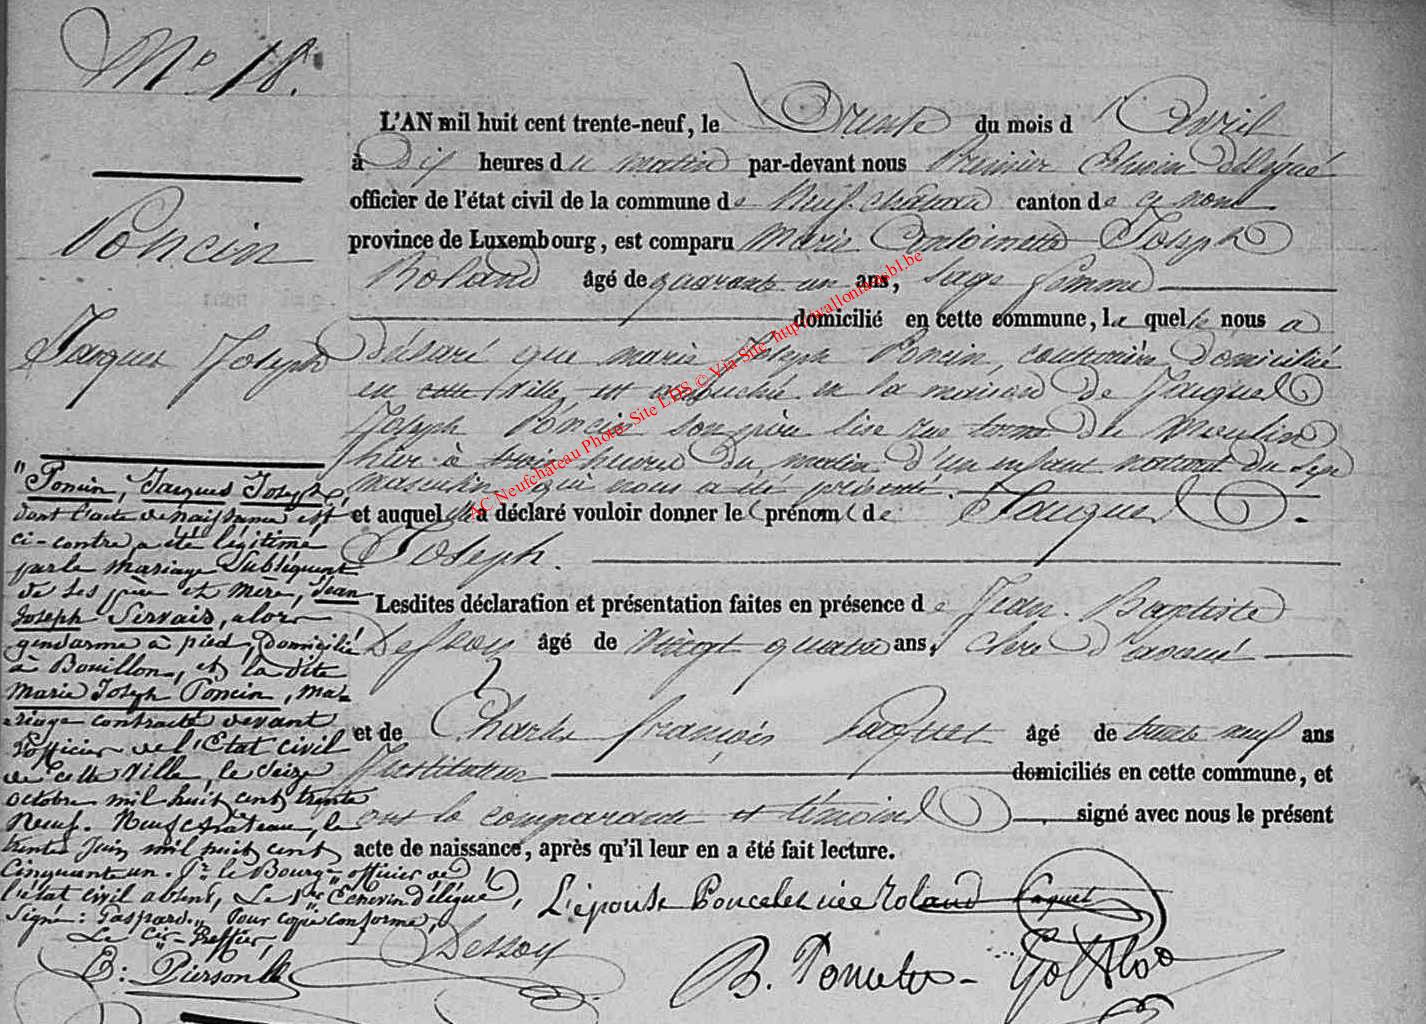 N° 18.
Poncin
Jacques Joseph
L'AN mil huit cent trente-neuf, le Trente du mois d'Avril
à Dix heures du matin par-devant nous Premier Echevin délégué
officier de l'état civil de la commune de Neufchateau canton de ce nom
province de Luxembourg, est comparu Marie Antoinette Joseph
Roland âgé de quarante un ans, sage femme
domicilié en cette commune, la quelle nous a
déclaré que marie Joseph Poncin, couturière, domiciliée
en cette ville, est accouchée en la maison de Jacques
Joseph Poncin son père sise rue du Moulin
hier à trois heures du matin d'un enfant du sexe
masculin qui nous a été présenté.
et auquel elle a déclaré vouloir donner les prénoms de Jacques
Joseph.
Lesdites déclaration et présentation faites en présence de Jean Baptiste
Dessoy âgé de vingt quatre ans, clerc d'avoué
et de Charles françois Paquet âgé de trente neuf ans
Instituteur domiciliés en cette commune, et
ont la comparante et témoins signé avec nous le présent
acte de naissance, après qu'il leur en a été fait lecture.
"Poncin, Jacques Joseph,
dont l'acte de naissance est
ci-contre a été légitimé
par le mariage subséquent
de ses père et mère, Jean
Joseph Servais, alors
gendarme à pied, domicilié
à Bouillon, et la dite
Marie Joseph Poncin, ma-
riage contracté devant
l'officier de l'Etat civil
de cette ville, le seize
octobre mil huit cent trente
neuf. Neufchâteau, le
trente Juin mil huit cent
cinquante un. Pr. le Bourg. officier de
l'état civil absent, Le 1er Echevin délégué,
Signé: Gaspard." Pour copie conforme,
Le Greffier,
E: Pierson
L'épouse Poncelet née Roland Paquet
Dessoy
AC Neufchâteau Photo: Site LDS © Via Site http://wallonia.asbl.be